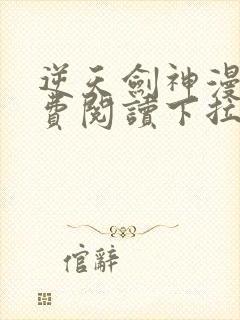 逆天劍神漫
費閱讀下拉
倌辭